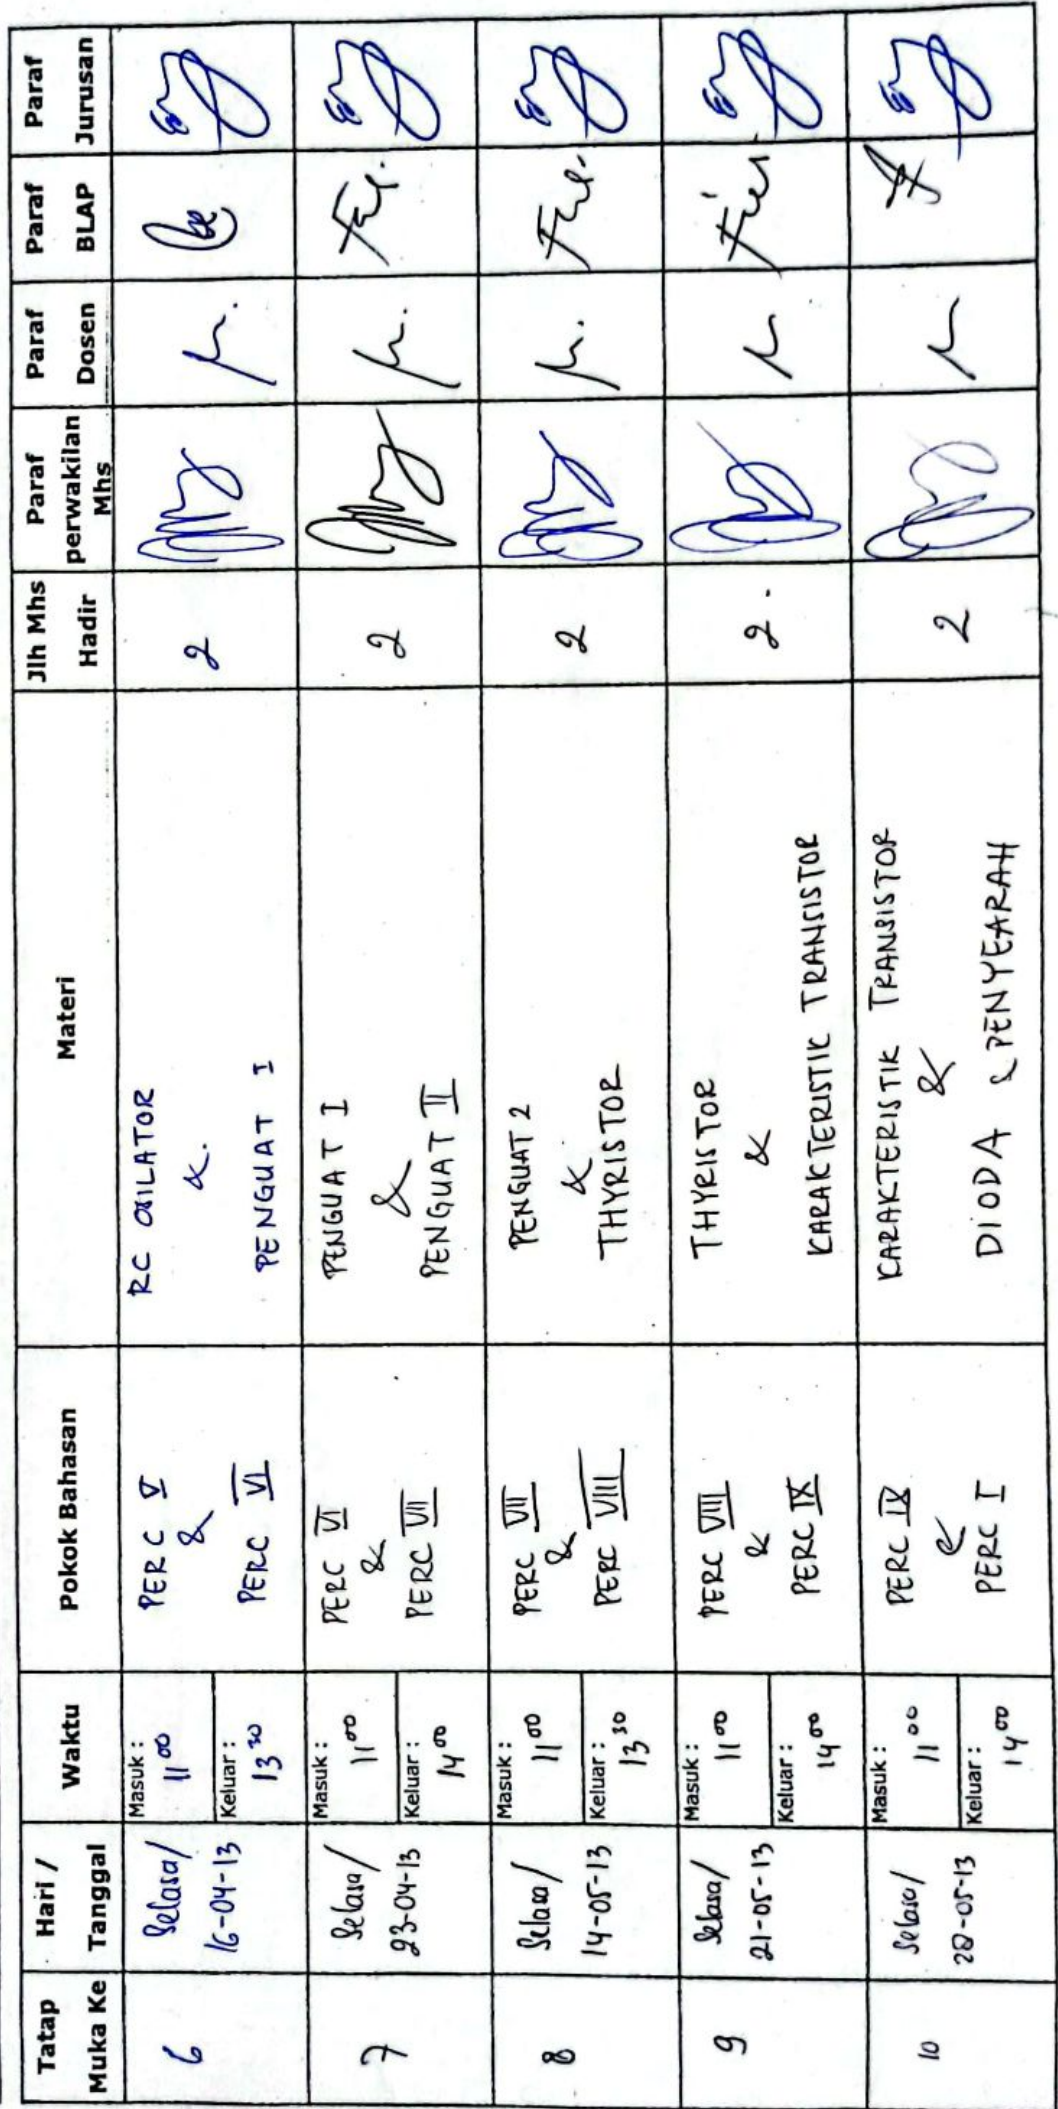 Tatap
Muka Ke
Hari /
Tanggal
Waktu
Pokok Bahasan
Materi
Jlh Mhs
Hadir
Paraf
perwakilan
Mhs
Paraf
Dosen
Paraf
BLAP
Paraf
Jurusan
6
Selasa/
16-04-13
Masuk :
11 00
Keluar :
13 30
PERC V
&
PERC VI
RC OSILATOR
&.
PENGUAT I
2
7
Selasa/
23-04-13
Masuk :
11 00
Keluar :
14 00
PERC VI
&
PERC VII
PENGUAT I
&
PENGUAT II
2
8
Selasa/
14-05-13
Masuk :
11 00
Keluar :
13 30
PERC VII
&
PERC VIII
PENGUAT 2
&
THYRISTOR
2
9
Selasa/
21-05-13
Masuk :
11 00
Keluar :
14 00
PERC VIII
&
PERC IX
THYRISTOR
&
KARAKTERISTIK TRANSISTOR
2.
10
Selasa/
28-05-13
Masuk :
11 00
Keluar :
14 00
PERC IX
&
PERC I
KARAKTERISTIK TRANSISTOR
&
DIODA & PENYEARAH
2